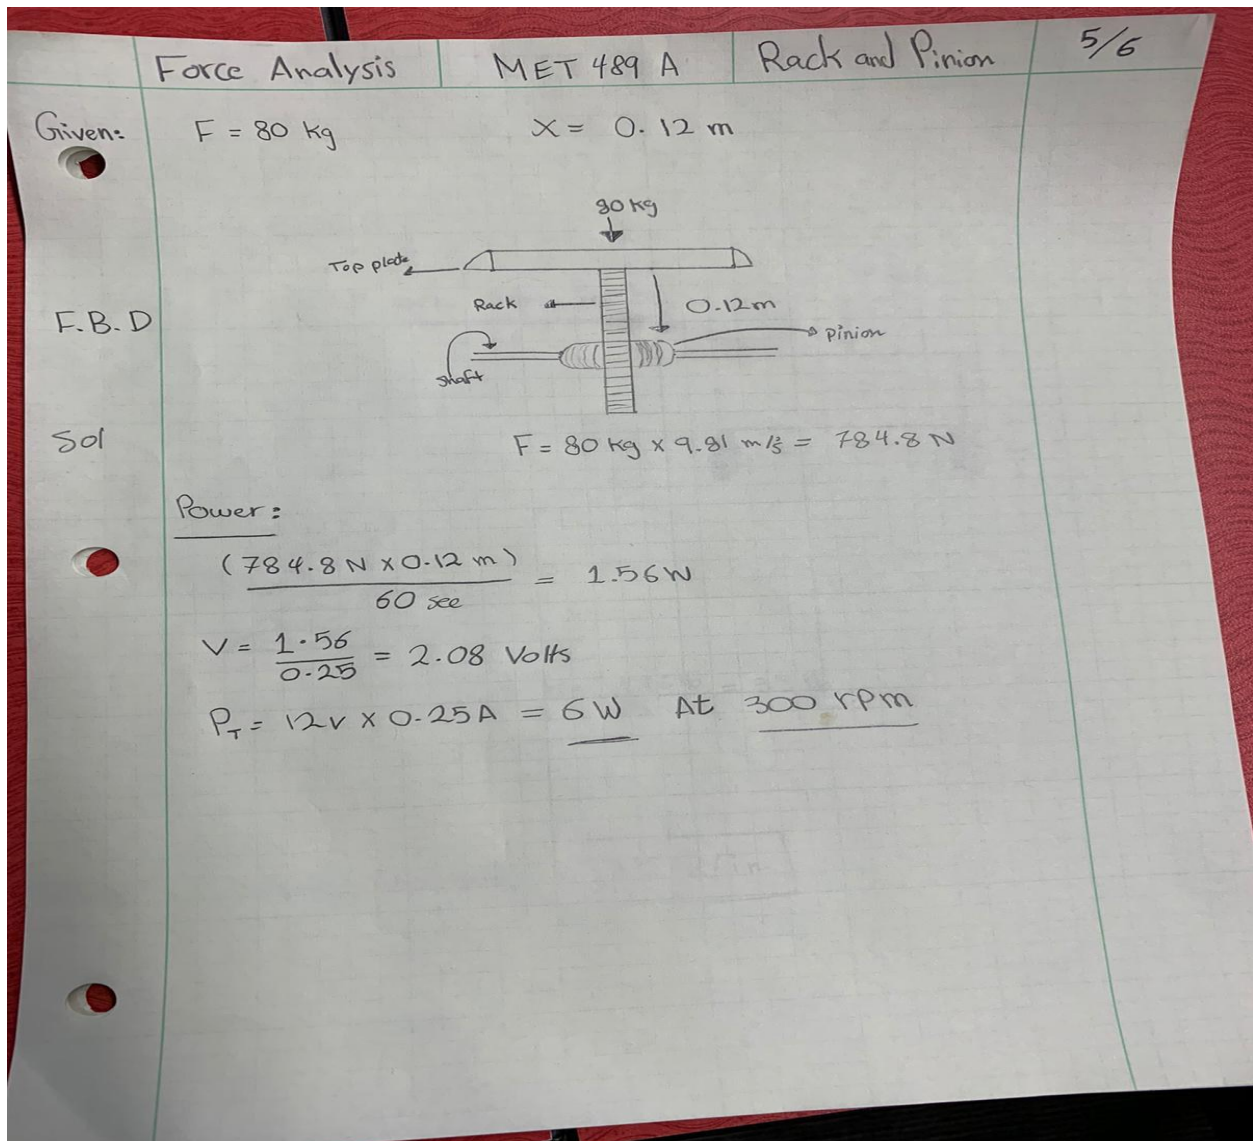 Force Analysis MET 489 A Rack and Pinion 5/6
Given: F = 80 kg X = 0.12 m
80 kg
Top plate
Rack 0.12m
F.B.D
Pinion
shaft
Sol F = 80 kg x 9.81 m/s² = 784.8 N
Power:
(784.8 N x 0.12 m)
= 1.56W
60 sec
V = 1.56 / 0.25 = 2.08 Volts
P_T = 12V x 0.25A = 6W At 300 rpm